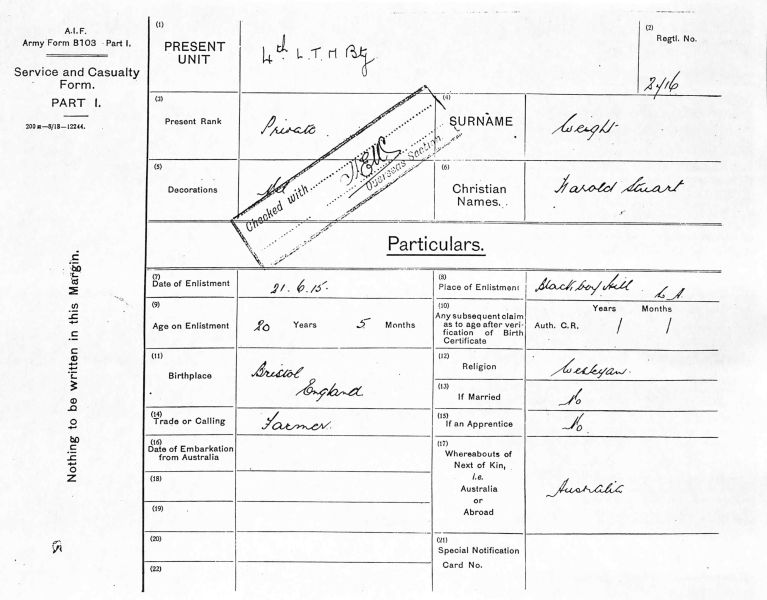 A.I.F.
Army Form B103 Part I.
Service and Casualty
Form.
PART I.
200 m—8/18—12244.
Nothing to be written in this Margin.
(1)
PRESENT
UNIT
4th L. T. M Bty
(2)
Regtl. No.
2716
(3)
Present Rank
Private
(4)
SURNAME
Weight
(5)
Decorations
Nil
Checked with
Overseas Section
(6)
Christian
Names.
Harold Stuart
Particulars.
(7)
Date of Enlistment
21.6.15.
(8)
Place of Enlistment
Blackboy Hill W.A.
(9)
Age on Enlistment
20 Years 5 Months
(10)
Any subsequent claim
as to age after veri-
fication of Birth
Certificate
Years Months
Auth. C.R. / /
(11)
Birthplace
Bristol
England
(12)
Religion
Wesleyan
(13)
If Married
No
(14)
Trade or Calling
Farmer.
(15)
If an Apprentice
No.
(16)
Date of Embarkation
from Australia
(17)
Whereabouts of
Next of Kin,
i.e.
Australia
or
Abroad
Australia
(18)
(19)
(20)
(21)
Special Notification
Card No.
(22)